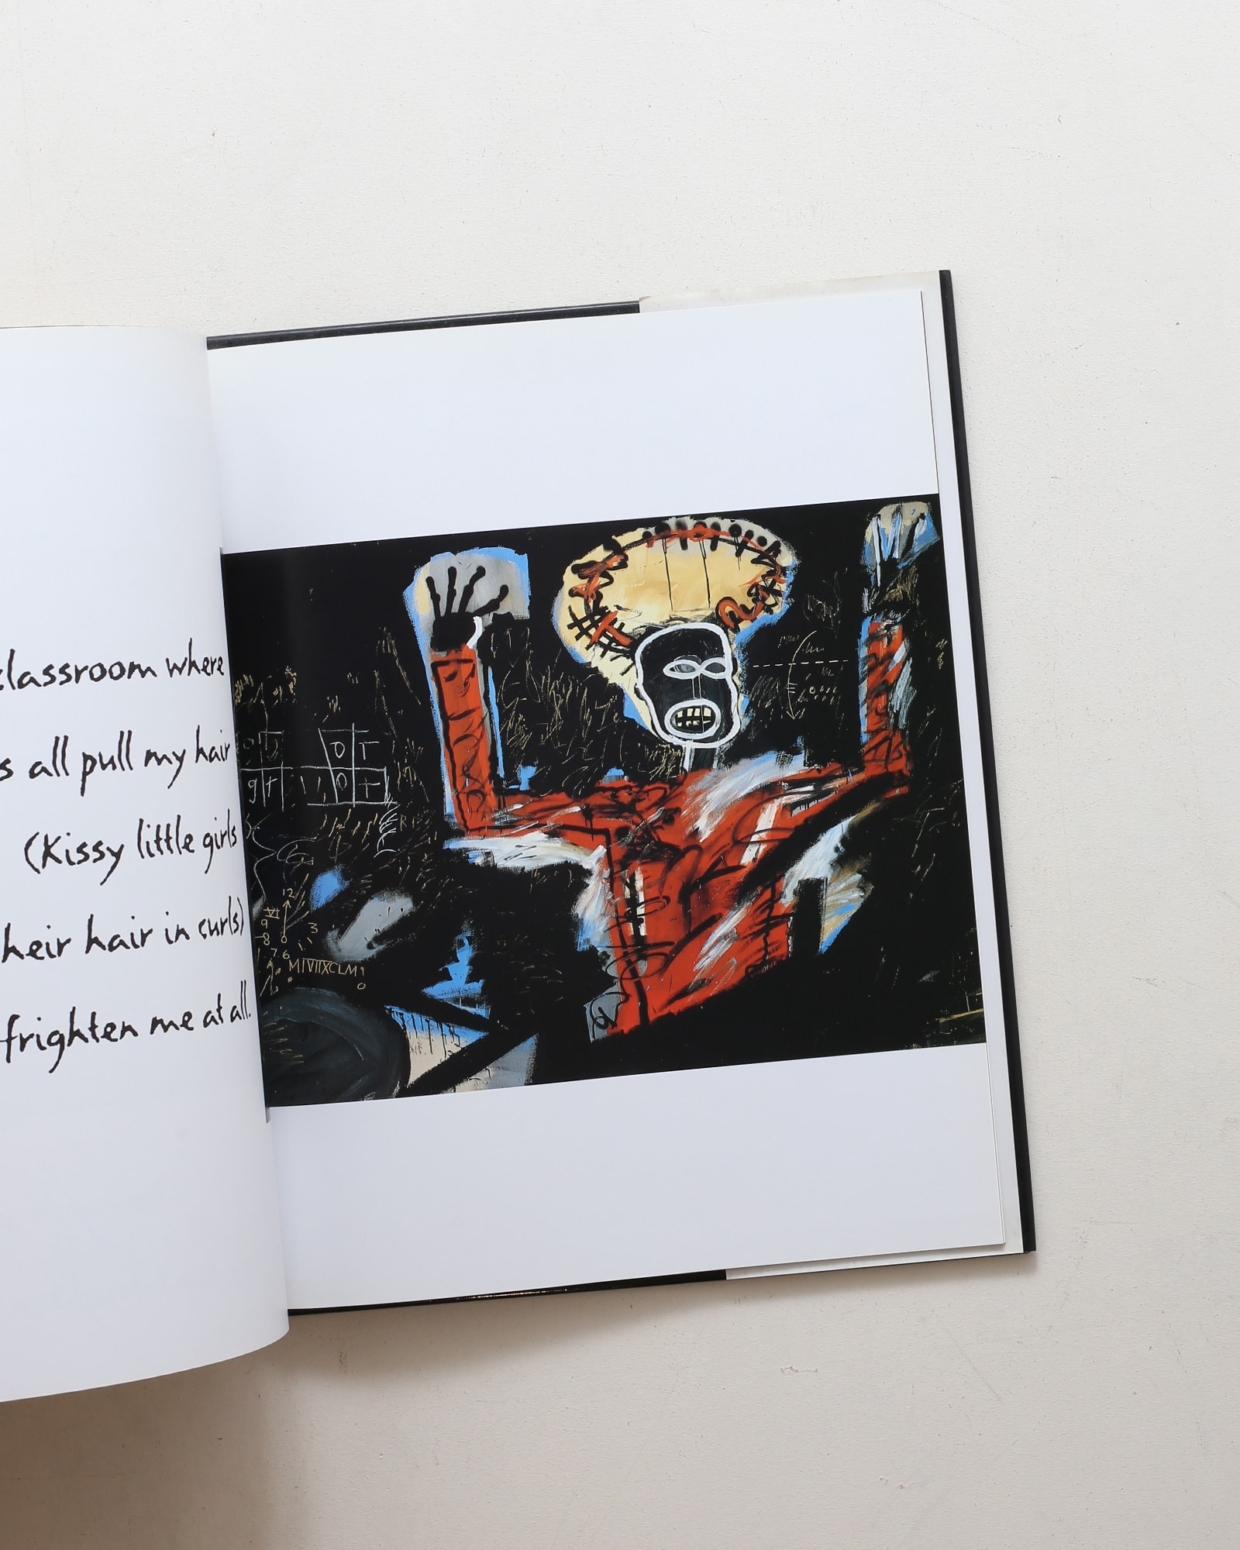 classroom where
s all pull my hair
(Kissy little girls
heir hair in curls)
frighten me at all.
OT
12
3
6
MIVIIXCLMI